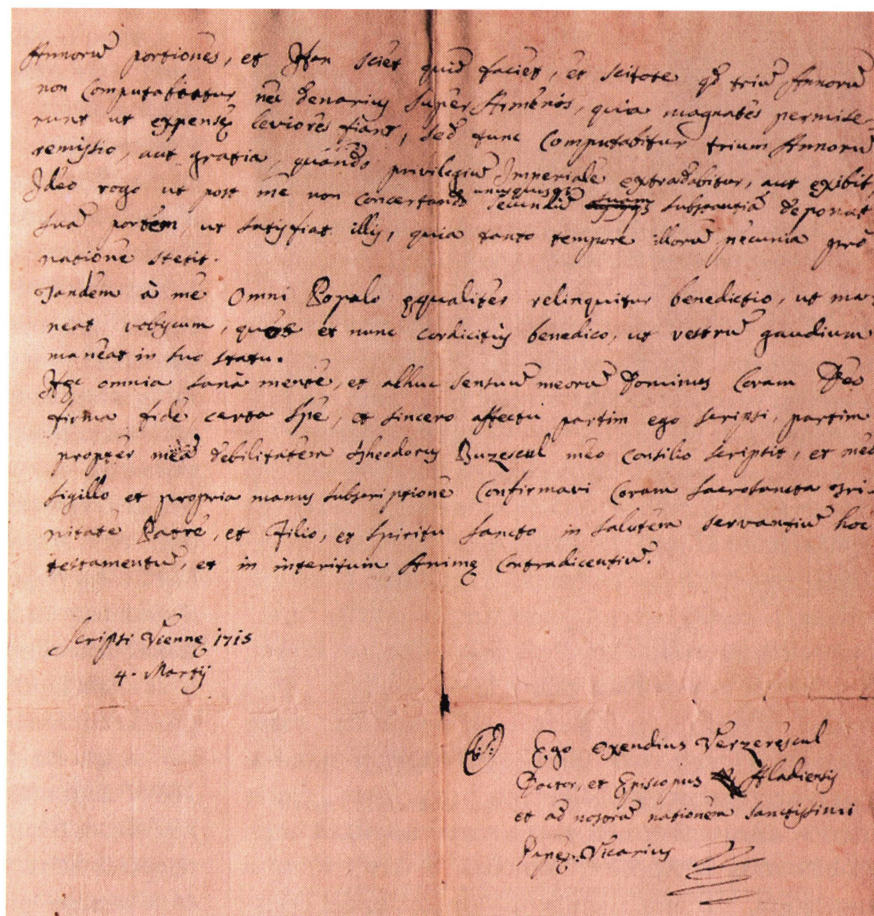 Annorū portiones, et Jtan sciet quid faciet, et scitote qd triū Annorū
non Computabitur nec denarius super Armenos, quia magnates permise-
runt ut expensę leviores fiant, sed tunc Computabitur trium Annorū
remissio, aut gratia, quando privilegiū Imperiale extradabitur, aut exibit,
Ideo rogo ut post me non concertando unusquisq; secundū substantiā deponat
suā portēm, ut satisfiat illis, quia tanto tempore illorū pecunia pro
natione stetit.
Tandem à me Omni Populo ęqualiter relinquitur benedictio, ut ma-
neat vobiscum, et nunc cordicitus benedico, ut vestrū gaudium
maneat in suo statu.
Hęc omnia sanā mente, et adhuc sensuū meorū Dominus Coram Deo
firma fide, certa spe, et sincero affectu partim ego scripsi, partim
propter meā debilitatem Theodorus Buzescul meo Consilio scripsit, et meo
sigillo et propria manus subscriptione Confirmavi Coram Sacrosancta Tri-
nitate Patre, et Filio, et Spiritu Sancto in salutem servantiū hoc
testamentū, et in interitum Animę Contradicentiū.
Scripsi Viennę 1715
4. Martij
(L.S.) Ego Oxendius Verzerescul
Doctor, et Episcopus Aladiensis
et ad nostrā nationem Sanctissimi
Papę Vicarius